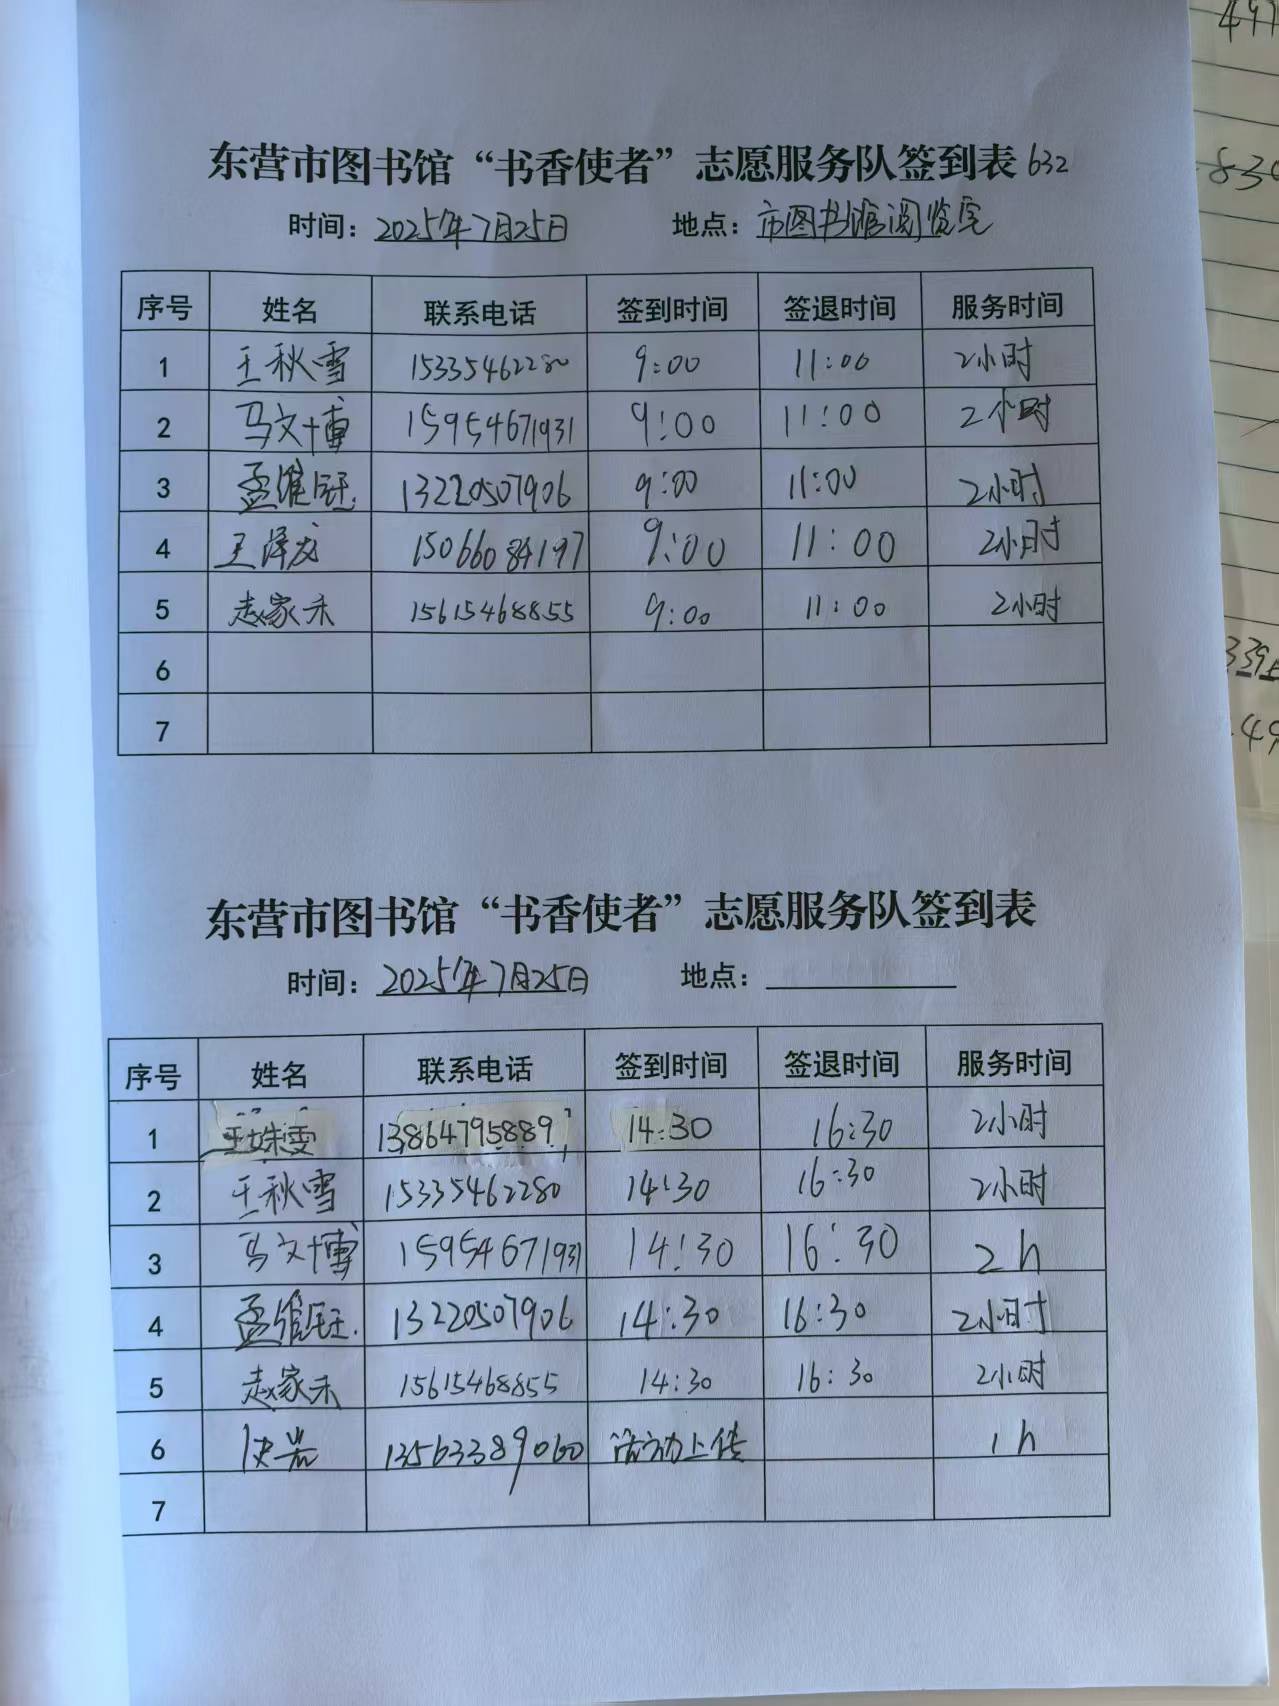 497
830
东营市图书馆“书香使者”志愿服务队签到表 632
时间：2025年7月25日 地点：市图书馆阅览室
序号 姓名 联系电话 签到时间 签退时间 服务时间
1 王秋雪 15335462280 9:00 11:00 2小时
2 马文博 15954671931 9:00 11:00 2小时
3 孟维钰 13220507906 9:00 11:00 2小时
4 王泽龙 15066084197 9:00 11:00 2小时
5 赵家禾 15615468855 9:00 11:00 2小时
6
7
339
49
东营市图书馆“书香使者”志愿服务队签到表
时间：2025年7月25日 地点：
序号 姓名 联系电话 签到时间 签退时间 服务时间
1 王姝雯 13864795889 14:30 16:30 2小时
2 王秋雪 15335462280 14:30 16:30 2小时
3 马文博 15954671931 14:30 16:30 2h
4 孟维钰 13220507906 14:30 16:30 2小时
5 赵家禾 15615468855 14:30 16:30 2小时
6 13563389060 活动上传 1h
7